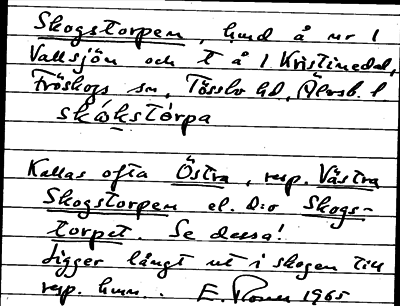 Skogstorpen, hmd å nr 1
Vallsjön och t å 1 Kristinedal,
Fröskogs sn, Tössbo hd, Älvsb. l
skókstòrpa
Kallas ofta Östra, resp. Västra
Skogstorpen el. D:o Skogs-
torpet. Se dessa!
Ligger långt ut i skogen till
resp. hmn.. E. 1965